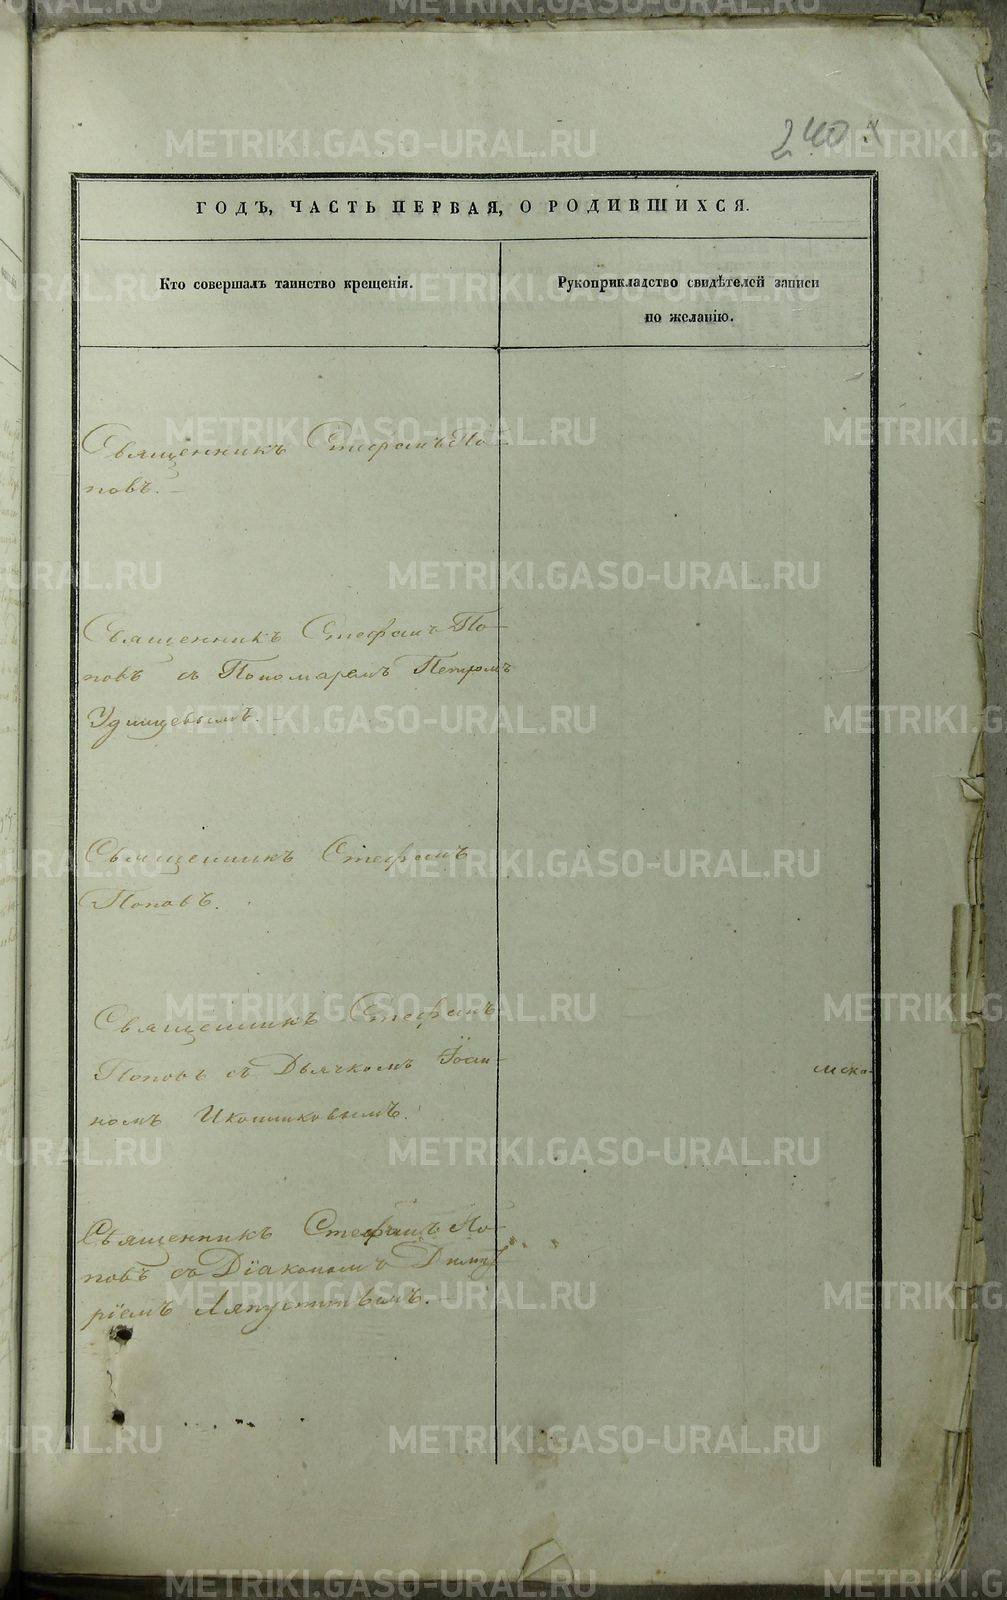 240
ГОДЪ, ЧАСТЬ ПЕРВАЯ, О РОДИВШИХСЯ.
Кто совершалъ таинство крещенія.
Рукоприкладство свидѣтелей записи
по желанію.
Священникъ Стефанъ По-
повъ.
Священникъ Стефанъ По-
повъ съ Пономаремъ Петромъ
Удинцевымъ.
Священникъ Стефанъ
Поповъ.
Священникъ Стефанъ
Поповъ съ Дьячкомъ Іоан-
номъ Иконниковымъ.
Священникъ Стефанъ По-
повъ съ Діакономъ Димит-
ріемъ Ляпустинымъ.
METRIKI.GASO-URAL.RU